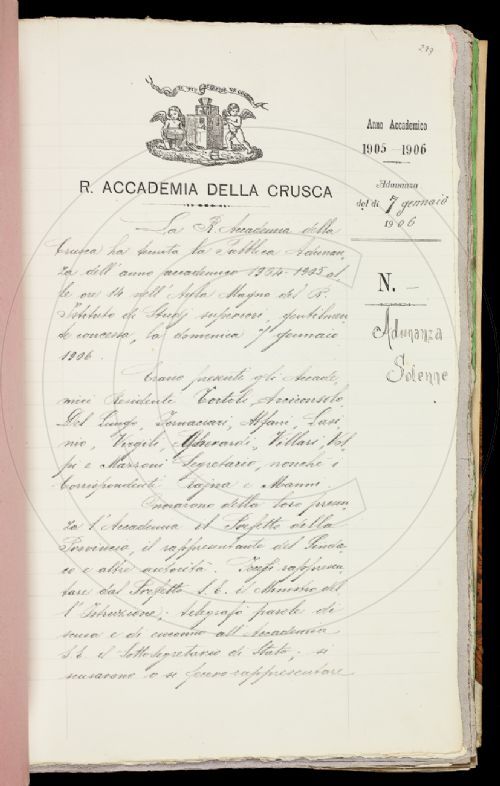 279
R. ACCADEMIA DELLA CRUSCA
Anno Accademico
1905-1906
Adunanza
del dì 7 gennaio
1906
N. —
Adunanza
Solenne
La R. Accademia della
Crusca ha tenuta la Pubblica Adunan-
za dell'anno accademico 1904-1905 al-
le ore 14 nell'Aula Magna del R.
Istituto di Studj superiori, gentilmen-
te concessa, la domenica 7 gennaio
1906.
Erano presenti gli Accade-
mici Residenti Tortoli, Arciconsolo,
Del Lungo, Tornaciari, Alfani, 
Virgilj, Gherardi, Villari, Vol-
pi e Mazzoni Segretario, nonché i
Corrispondenti Rajna e Manni.
Onorarono della loro presen-
za l'Accademia il Prefetto della
Provincia, il rappresentante del Sinda-
co e altre autorità. Fecesi rappresen-
tare dal Prefetto S. E. il Ministro del-
l'Istruzione; telegrafò parole di
scusa e di encomio all'Accademia
S. E. il Sottosegretario di Stato; si
scusarono o si fecero rappresentare